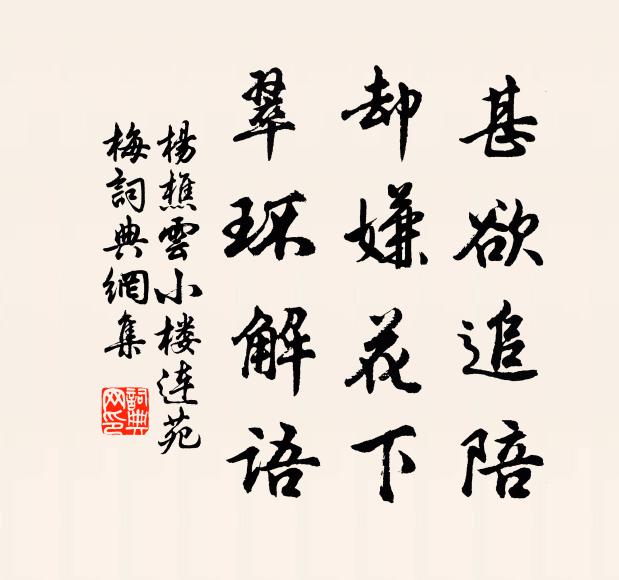 甚欲追陪
却嫌花下
翠环解语
杨樵雲小楼连苑
梅詞典網集
詞典
网印